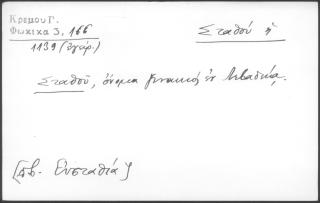 Κρέμου Γ.
Φωκικά 3, 166
1139 (ἔγγρ.)
Σταθού ἡ
Σταθοῦ, ὄνομα γυναικός ἐν Λιβαδείᾳ.
[πβ. Εὐσταθία]